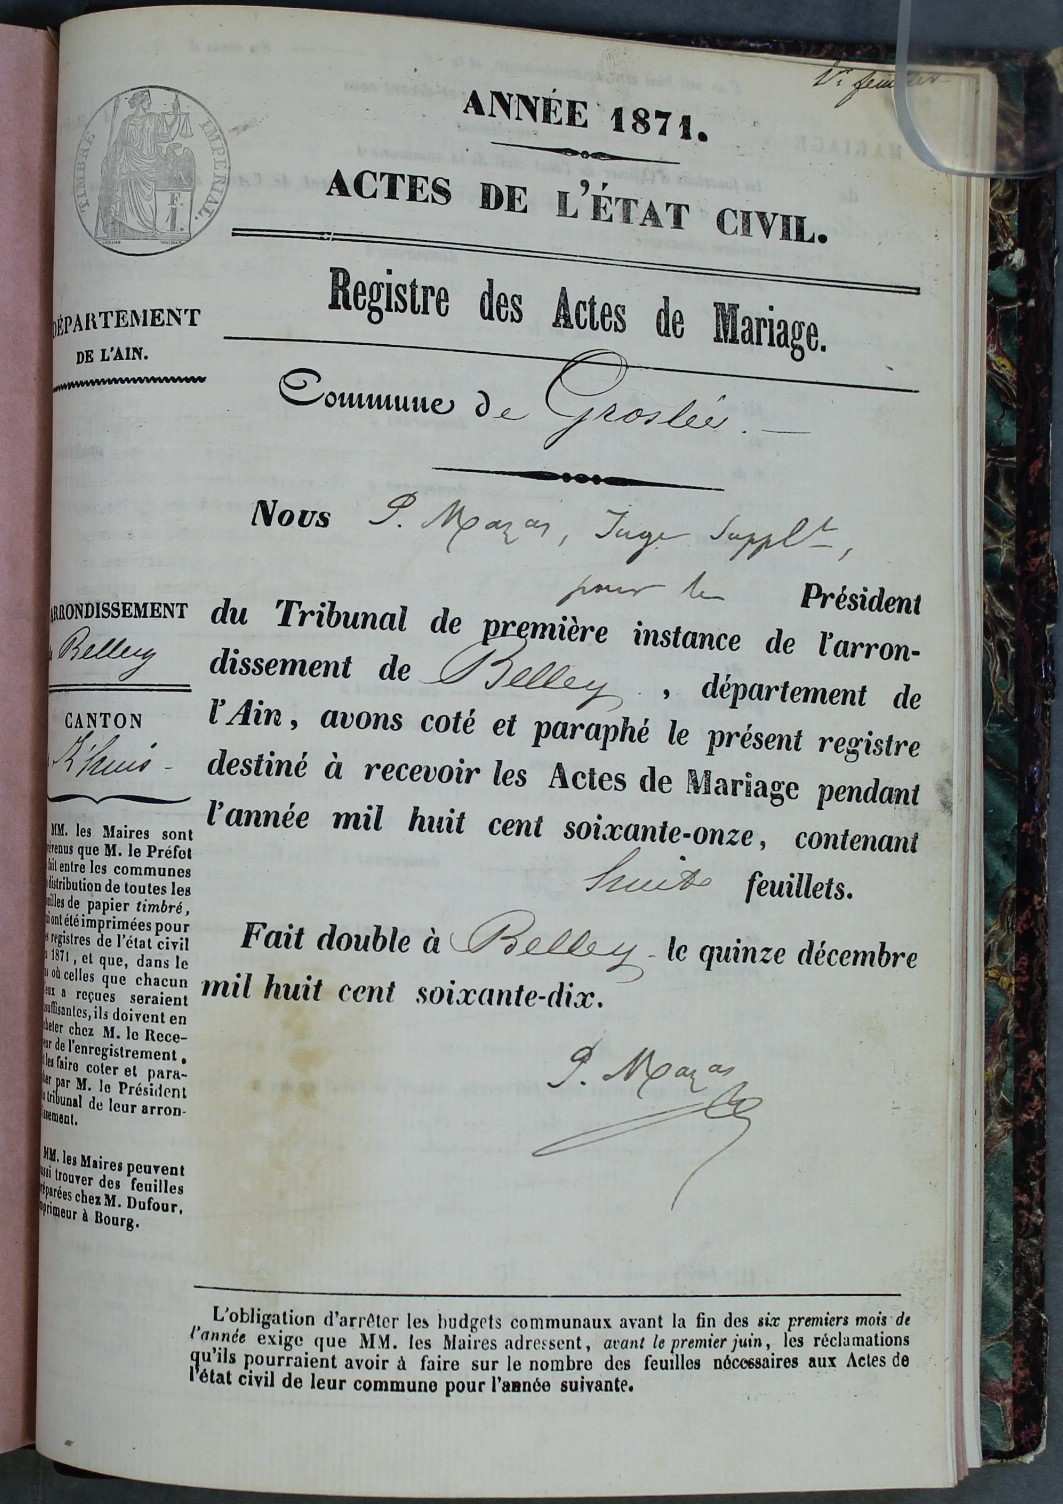 1er feuillet
ANNÉE 1871.
ACTES DE L'ÉTAT CIVIL.
TIMBRE IMPÉRIAL.
F.
1.
Registre des Actes de Mariage.
DÉPARTEMENT
DE L'AIN.
Commune de Groslée.
Nous P. Mazas, Juge Supplt,
pour le Président
ARRONDISSEMENT
Belley
CANTON
L'huis
du Tribunal de première instance de l'arron-
dissement de Belley, département de
l'Ain, avons coté et paraphé le présent registre
destiné à recevoir les Actes de Mariage pendant
l'année mil huit cent soixante-onze, contenant
huit feuillets.
Fait double à Belley le quinze décembre
mil huit cent soixante-dix.
P. Mazas
MM. les Maires sont
venus que M. le Préfet
fait entre les communes
distribution de toutes les
illes de papier timbré,
ui ont été imprimées pour
s registres de l'état civil
1871, et que, dans le
s où celles que chacun
eux a reçues seraient
suffisantes, ils doivent en
cheter chez M. le Rece-
eur de l'enregistrement,
les faire coter et para-
her par M. le Président
tribunal de leur arron-
issement.
MM. les Maires peuvent
ussi trouver des feuilles
réparées chez M. Dufour,
mprimeur à Bourg.
L'obligation d'arrêter les budgets communaux avant la fin des six premiers mois de
l'année exige que MM. les Maires adressent, avant le premier juin, les réclamations
qu'ils pourraient avoir à faire sur le nombre des feuilles nécessaires aux Actes de
l'état civil de leur commune pour l'année suivante.